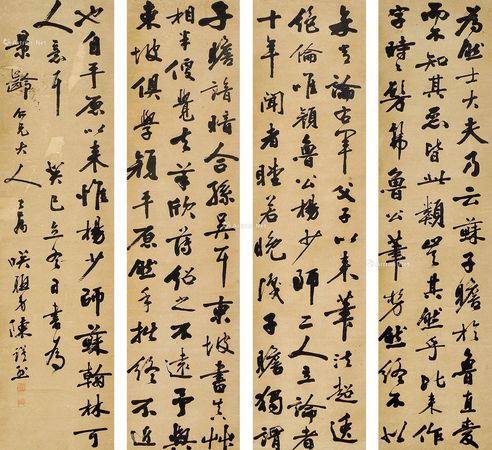 為然士大夫乃云蘇子瞻於魯直愛
而不知其惡皆此類豈其然乎比來作
字時時髣髴魯公筆勢然終不似
論右軍父子以來筆法超逸
絕倫唯顏魯公楊少師二人立論者
十年聞者瞠若晚識子瞻獨謂
子瞻諳暗合孫吳耳東坡書真艸
相半便覺去羊欣薄紹之不遠予與
東坡俱學顏平原然手拙終不近
也自平原以來惟楊少師蘇翰林可
人意耳 癸巳立冬日書為
景齡仁兄大人
弟陳